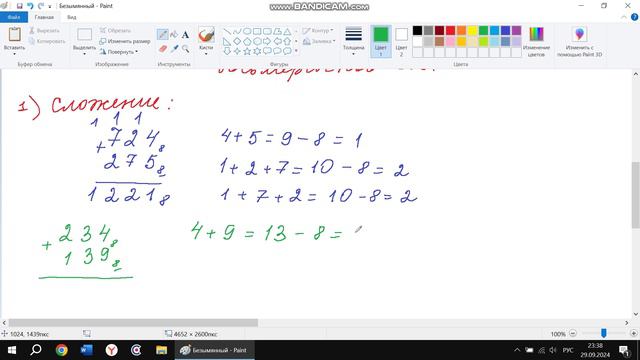 www.BANDICAM.com
Безымянный - Paint
Файл Главная Вид
Вставить
Вырезать
Копировать
Буфер обмена
Выделить
Обрезать
Изменить размер
Повернуть
Изображение
Инструменты
Кисти
Контур
Заливка
Фигуры
Толщина
Цвет 1
Цвет 2
Цвета
Изменение цветов
Изменить с помощью Paint 3D
1) Сложение:
1 1 1
+724₈
275₈
12218
4+5=9-8=1
1+2+7=10-8=2
1+7+2=10-8=2
+ 234₈
139₈
4+9=13-8=
1024, 1439пкс
4652 × 2600пкс
100%
Безымянный - Paint
РУС
23:38
29.09.2024